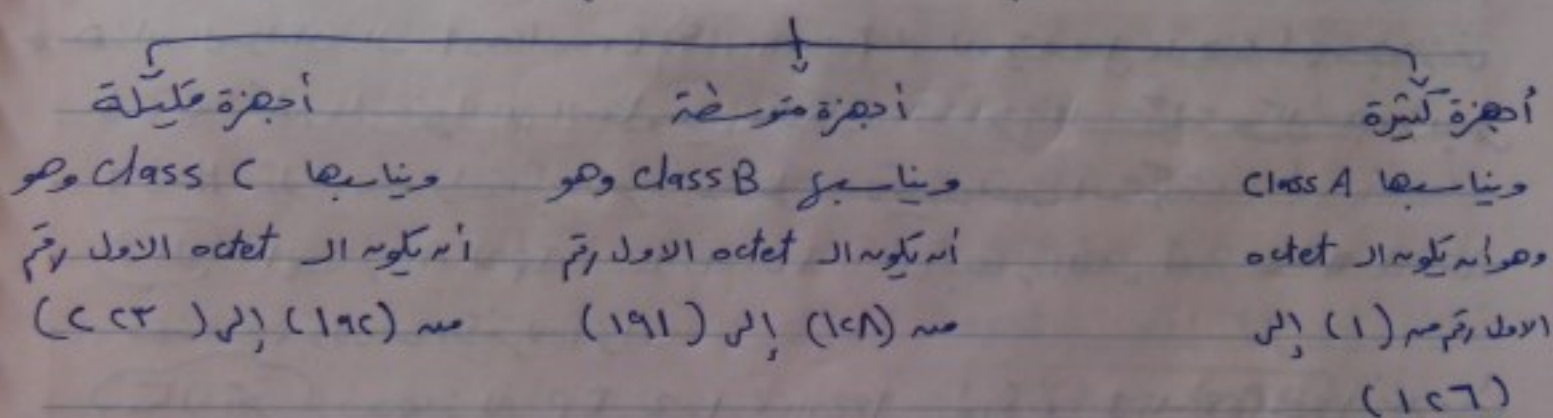 أجهزة كثيرة
ويناسبها Class A
وهو أن يكون ال octet
الاول رقم من (١) إلى
(١٢٦)
أجهزة متوسطة
ويناسبها Class B وهو
أن يكون ال octet الاول رقم
من (١٢٨) إلى (١٩١)
أجهزة قليلة
ويناسبها Class C وهو
أن يكون ال octet الاول رقم
من (١٩٢) إلى (٢٢٣)